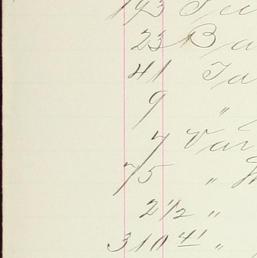 193
23 Ba
41 Ta
9 "
7 Var
75 "
2 1/2 "
310 41 "